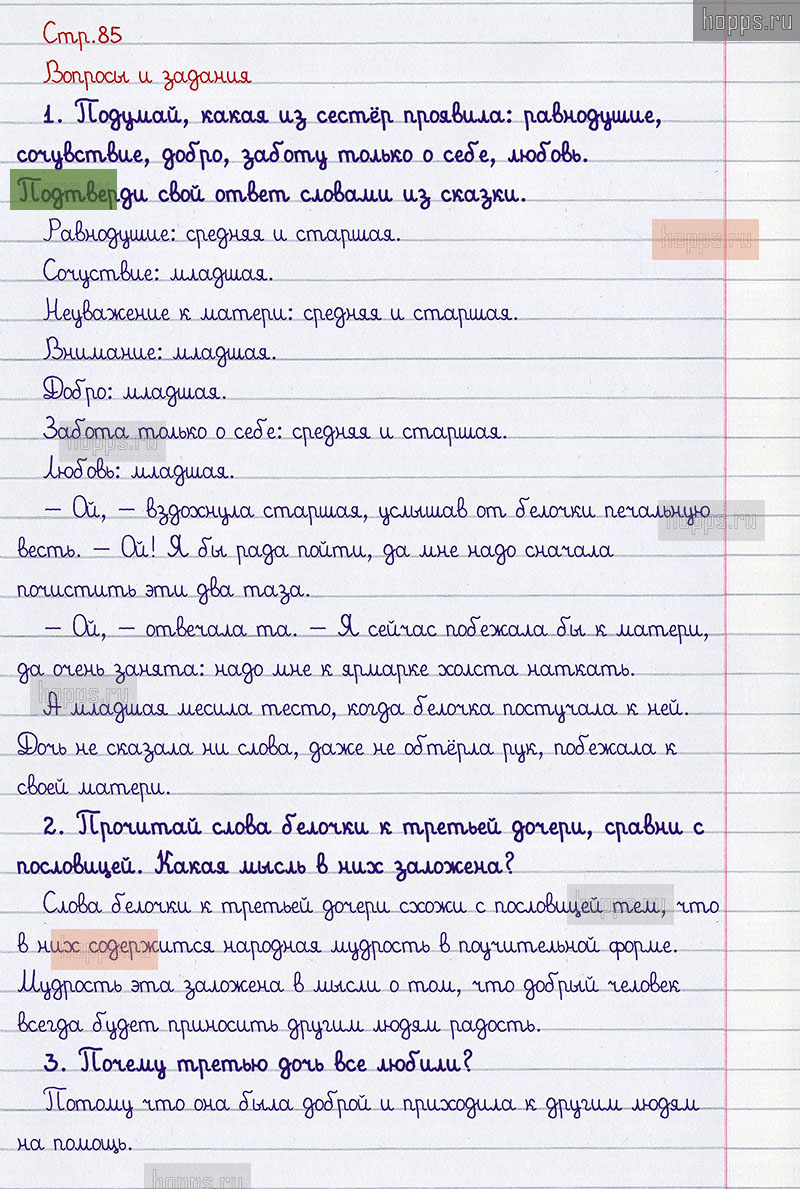 hopps.ru
Стр.85
Вопросы и задания
1. Подумай, какая из сестёр проявила: равнодушие,
сочувствие, добро, заботу только о себе, любовь.
Подтверди свой ответ словами из сказки.
Равнодушие: средняя и старшая.
hopps.ru
Сочуствие: младшая.
Неуважение к матери: средняя и старшая.
Внимание: младшая.
Добро: младшая.
Забота только о себе: средняя и старшая.
hopps.ru
Любовь: младшая.
– Ой, – вздохнула старшая, услышав от белочки печальную
hopps.ru
весть. – Ой! Я бы рада пойти, да мне надо сначала
почистить эти два таза.
– Ой, – отвечала та. – Я сейчас побежала бы к матери,
да очень занята: надо мне к ярмарке холста наткать.
hopps.ru
А младшая месила тесто, когда белочка постучала к ней.
Дочь не сказала ни слова, даже не обтёрла рук, побежала к
своей матери.
2. Прочитай слова белочки к третьей дочери, сравни с
пословицей. Какая мысль в них заложена?
Слова белочки к третьей дочери схожи с пословицей тем, что
hopps.ru
в них содержится народная мудрость в поучительной форме.
hopps.ru
Мудрость эта заложена в мысли о том, что добрый человек
всегда будет приносить другим людям радость.
3. Почему третью дочь все любили?
Потому что она была доброй и приходила к другим людям
на помощь.
hopps.ru